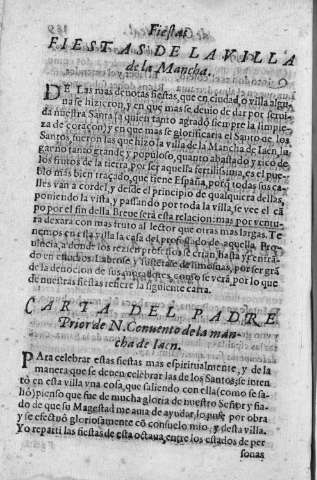 Fiestas
FIESTAS DE LA VILLA
de la Mancha.
DE Las mas deuotas fiestas, que en ciudad, o villa algu
na se hizieron, y en que mas se deuio de dar por serui
da nuestra Santa (a quien tanto agradó siempre la limpie
za de coraçon) y en que mas se glorificaria el Santo de los
Santos, fueron las que hizo la villa de la Mancha de Iaen, lu
gar no tanto grande y populoso, quanto abastado y rico de
los frutos de la tierra, por ser aquella fertilissima, es el pue
blo mas bien traçado, que tiene España, porq̃ todas sus ca
lles van a cordel, y desde el principio de qualquiera dellas,
poniendo la vista, y passando por toda la villa, se vee el cã
po por el fin della Breue será esta relacion: mas por ventu
ra dexara con mas fruto al lector que otras mas largas. Te
nemos en esta villa la casa del professado de aquella Pro
uincia, a donde los rezien professos se crian hasta
en estudios. Labrose, y de limosnas, por ser grã
de la deuocion de sus como se verá por lo que
de nuestras fiestas refiere la siguiente carta.
CARTA DEL PADRE
Prior de N. Conuento de la man-
cha de Iaen.
PAra celebrar estas fiestas mas espiritualmente, y de la
manera que se deuen celebrar las de los Santos, se inten
tó en esta villa vna cosa, que saliendo con ella (como se sa
lió) pienso que fue de mucha gloria de nuestro Señor, y fia
do de que su Magestad me auia de ayudar, lo puse por obra
y se efectuó gloriosamente cõ consuelo mio, y desta villa.
Yo reparti las fiestas de esta octaua entre los estados de per
sonas